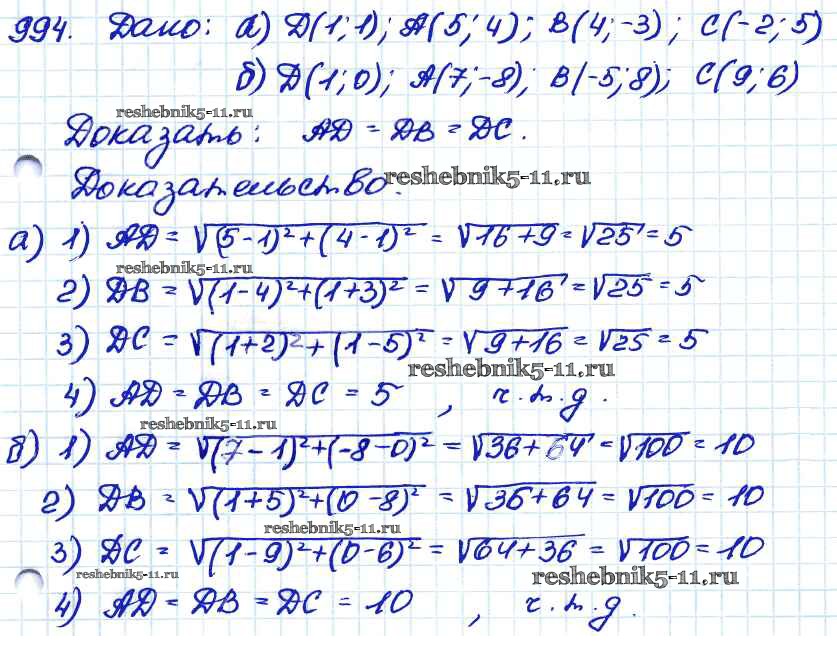 994. Дано: а) D(1; 1); A(5; 4); B(4; -3); C(-2; 5)
б) D(1; 0); A(7; -8); B(-5; 8); C(9; 6)
reshebnik5-11.ru
Доказать: AD = DB = DC.
Доказательство: reshebnik5-11.ru
а) 1) AD = √(5-1)²+(4-1)² = √16+9 = √25 = 5
reshebnik5-11.ru
2) DB = √(1-4)²+(1+3)² = √9+16 = √25 = 5
3) DC = √(1+2)²+(1-5)² = √9+16 = √25 = 5
reshebnik5-11.ru
4) AD = DB = DC = 5, ч.т.д.
reshebnik5-11.ru
б) 1) AD = √(7-1)²+(-8-0)² = √36+64 = √100 = 10
2) DB = √(1+5)²+(0-8)² = √36+64 = √100 = 10
reshebnik5-11.ru
3) DC = √(1-9)²+(0-6)² = √64+36 = √100 = 10
reshebnik5-11.ru reshebnik5-11.ru
4) AD = DB = DC = 10, ч.т.д.